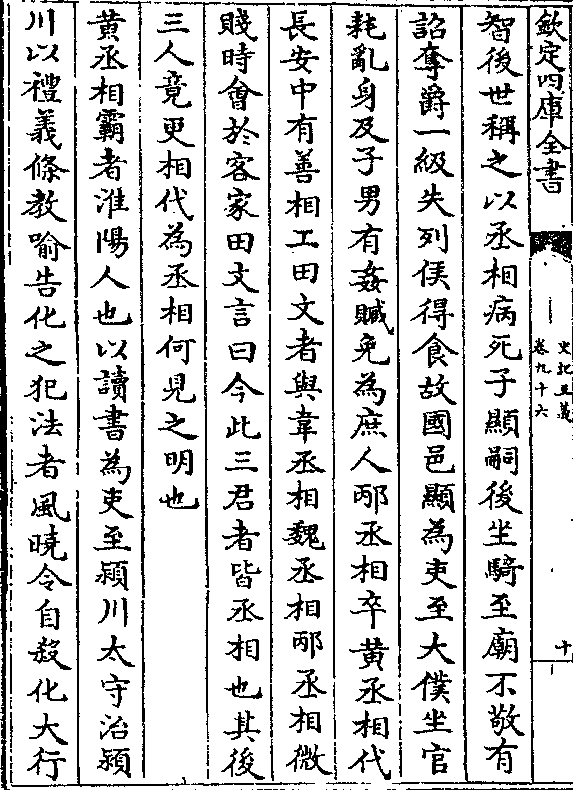 欽定四庫全書
史記正義
卷九十六
十
智後世稱之以丞相病死子顯嗣後坐騎至廟不敬有
詔奪爵一級失列侯得食故國邑顯為吏至大僕坐官
耗亂身及子男有姦贓免為庶人邴丞相卒黃丞相代
長安中有善相工田文者與韋丞相魏丞相邴丞相微
賤時會於客家田文言曰今此三君者皆丞相也其後
三人竟更相代為丞相何見之明也
黃丞相霸者淮陽人也以讀書為吏至潁川太守治潁
川以禮義條教喻告化之犯法者風曉令自殺化大行